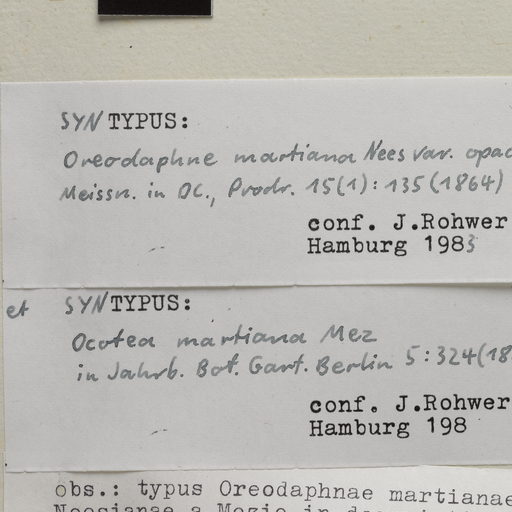 SYNTYPUS:
Oreodaphne martiana Nees var. opac
Meissn. in DC., Prodr. 15(1):135(1864)
conf. J.Rohwer
Hamburg 1983
et SYNTYPUS:
Ocotea martiana Mez
in Jahrb. Bot. Gart. Berlin 5:324(18
conf. J.Rohwer
Hamburg 198
obs.: typus Oreodaphnae martianae